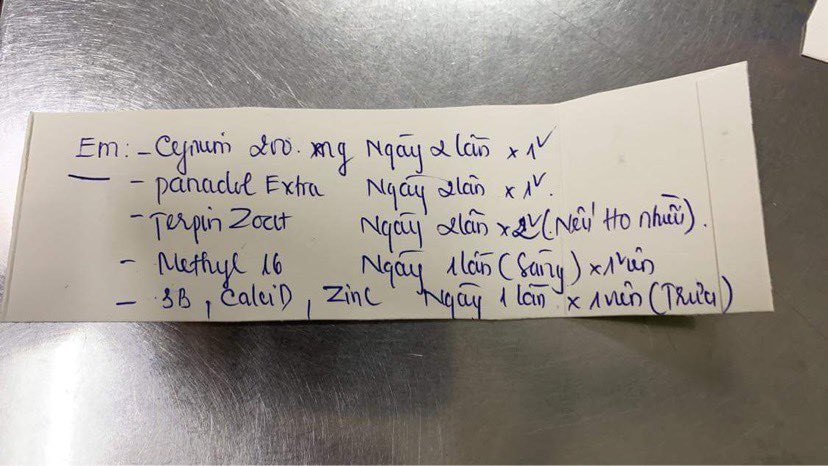 Em: - Cefnim 200. mg Ngày 2 lần x 1v
- panadol Extra Ngày 2 lần x 1v.
- Terpin Zoat Ngày 2 lần x 2v (Nếu Ho nhiều).
- Methyl 16 Ngày 1 lần (Sáng) x 1 viên
- 3B, Calci D, Zinc Ngày 1 lần x 1 viên (Trưa)